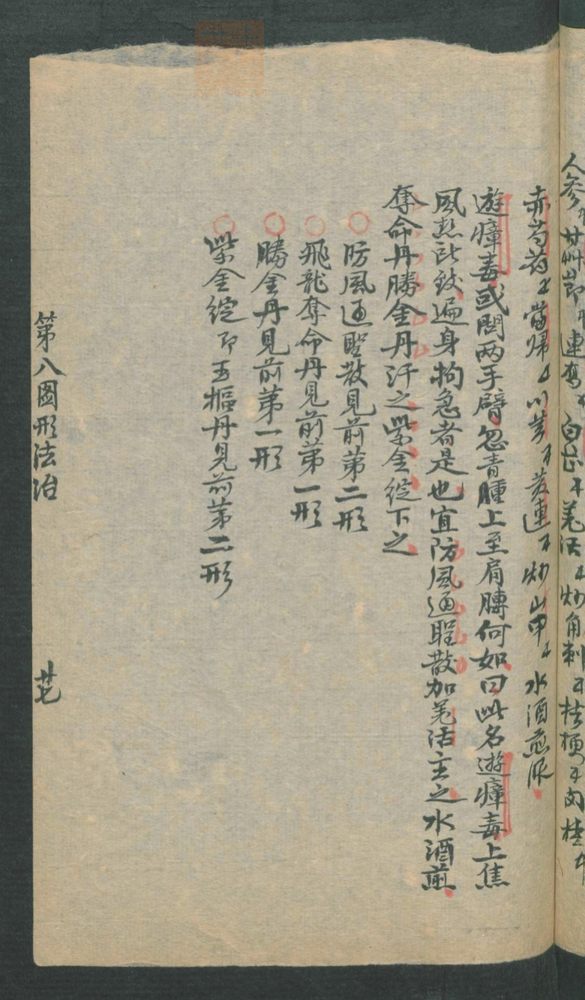 人參 甘艸節 連翹 白芷 羌活 炒角刺 桔梗 肉桂
赤芍葯 當歸 川芎 黃連 炒山甲 水酒煎服
遊瘴毒或問兩手臂忽青腫上至肩膊何如曰此名遊瘴毒上焦
風熱所致遍身拘急者是也宜防風通聖散加羌活主之水酒煎
奪命丹勝金丹汗之紫金錠下之
○防風通聖散見前第二形
○飛龍奪命丹見前第一形
○勝金丹見前第一形
○紫金錠即玉樞丹見前第二形
第八圖形法治